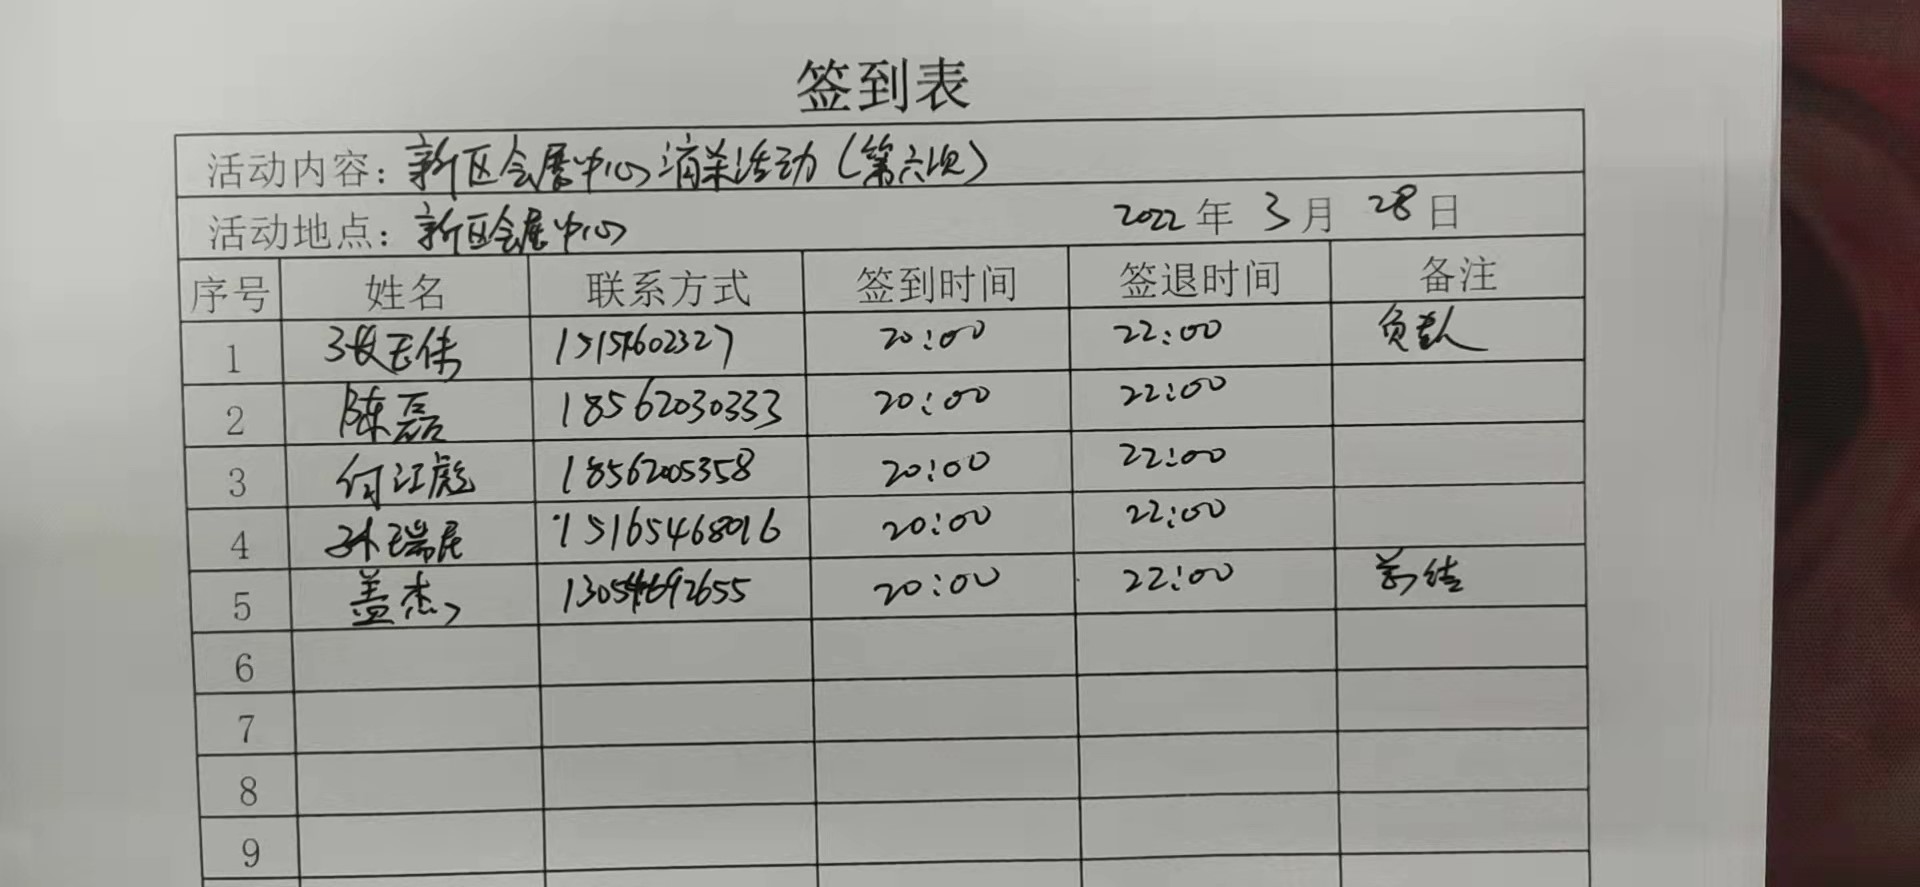 签到表
活动内容：新区会展中心消杀活动（第六次）
活动地点：新区会展中心 2022年 3月 28日
序号 姓名 联系方式 签到时间 签退时间 备注
1 张玉伟 15154602327 20:00 22:00 负责人
2 陈磊 18562030333 20:00 22:00
3 付江彪 18562005358 20:00 22:00
4 孙瑞民 15165468016 20:00 22:00
5 盖杰 20:00 22:00
6
7
8
9